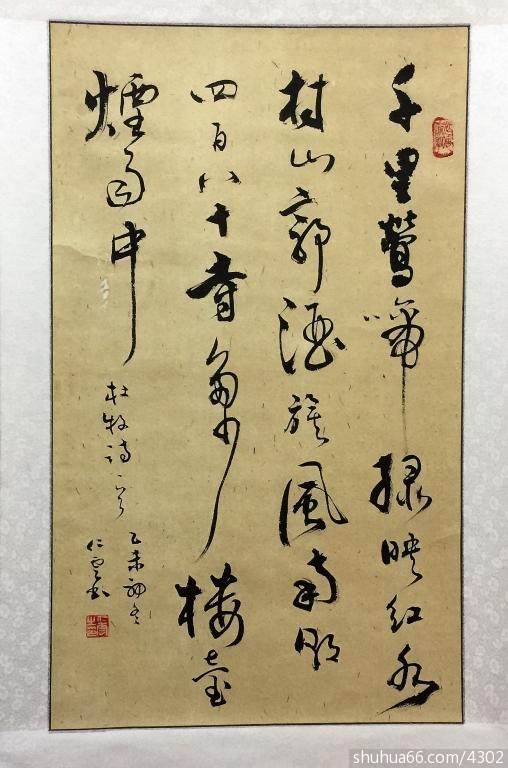 千里鶯啼綠映紅水
村山郭酒旗風南朝
四百八十寺多少樓臺
煙雨中
杜牧詩一首
乙未初冬
仁雲书
shuhua66.com/4302